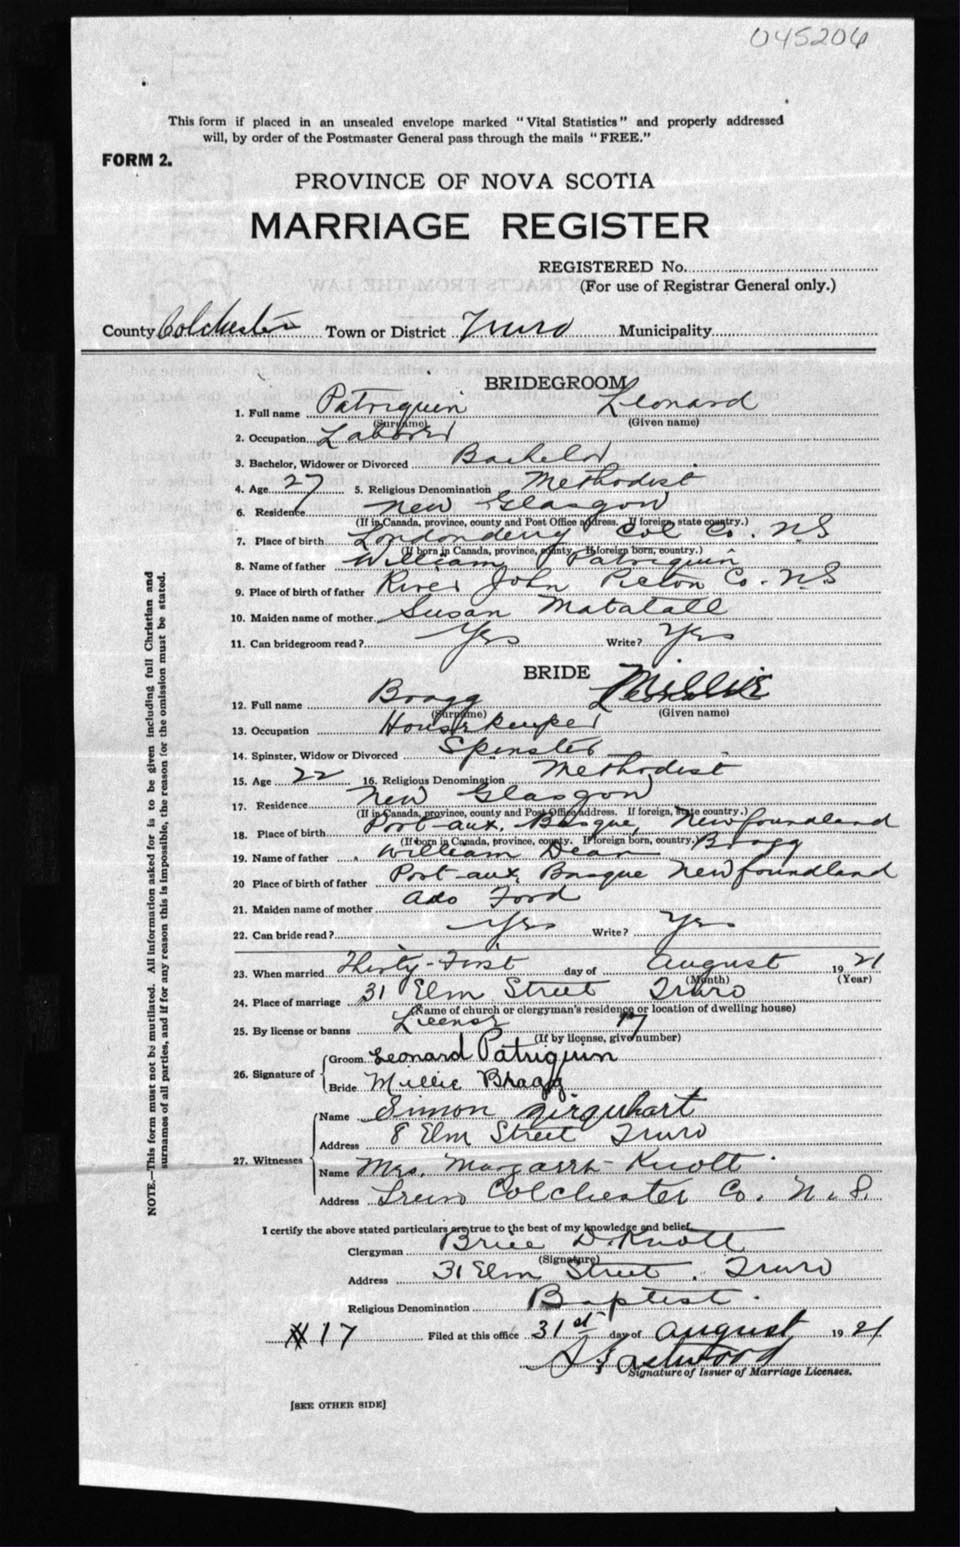 045206
This form if placed in an unsealed envelope marked "Vital Statistics" and properly addressed
will, by order of the Postmaster General pass through the mails "FREE."
FORM 2.
PROVINCE OF NOVA SCOTIA
MARRIAGE REGISTER
REGISTERED No.
(For use of Registrar General only.)
County Colchester Town or District Truro Municipality
BRIDEGROOM
1. Full name Patriquin Leonard
(Surname) (Given name)
2. Occupation Laborer
3. Bachelor, Widower or Divorced Bachelor
4. Age 27 5. Religious Denomination Methodist
6. Residence New Glasgow
(If in Canada, province, county and Post Office address. If foreign, state country.)
7. Place of birth Londonderry Col Co. N.S
(If born in Canada, province, county. If foreign born, country.)
8. Name of father William Patriquin
9. Place of birth of father River John Picton Co. N.S
10. Maiden name of mother Susan Matatall
11. Can bridegroom read? Yes Write? Yes
BRIDE
12. Full name Bragg Millie
(Surname) (Given name)
13. Occupation Housekeeper
14. Spinster, Widow or Divorced Spinster
15. Age 22 16. Religious Denomination Methodist
17. Residence New Glasgow
(If in Canada, province, county and Post Office address. If foreign, state country.)
18. Place of birth Port-aux, Basque, Newfoundland
(If born in Canada, province, county. If foreign born, country.)
19. Name of father William Dean Bragg
20 Place of birth of father Port-aux, Basque Newfoundland
21. Maiden name of mother Ado Ford
22. Can bride read? Yes Write? Yes
23. When married Thirty-First day of August 1921
(Month) (Year)
24. Place of marriage 31 Elm Street Truro
(Name of church or clergyman's residence or location of dwelling house)
25. By license or banns License 17
(If by license, give number)
26. Signature of
Groom Leonard Patriquin
Bride Millie Bragg
27. Witnesses
Name Simon
Address 8 Elm Street Truro
Name Mrs. Knott
Address Truro Colchester Co. N.S.
I certify the above stated particulars are true to the best of my knowledge and belief.
Clergyman Brice D Knott
(Signature)
Address 31 Elm Street. Truro
Religious Denomination Baptist.
# 17 Filed at this office 31st day of August 1921
Eastwood
Signature of Issuer of Marriage Licenses.
[SEE OTHER SIDE]
NOTE.—This form must not be mutilated. All information asked for is to be given including full Christian and
surnames of all parties, and if for any reason this is impossible, the reason for the omission must be stated.